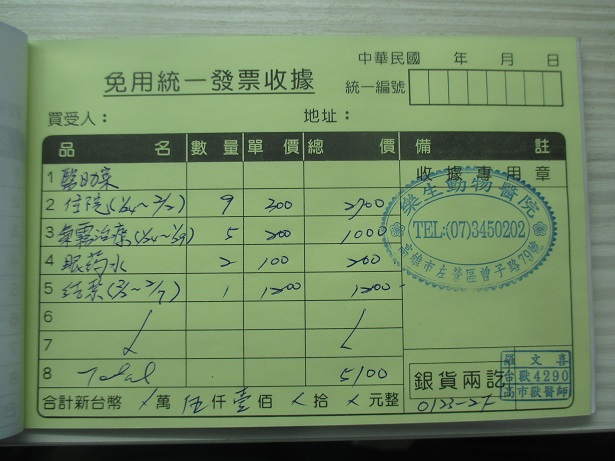 中華民國 年 月 日
免用統一發票收據
統一編號
買受人： 地址：
品名 數量 單價 總價 備註
收據專用章
1
2 住院(1/24~2/2) 9 300 2700
3 氣霧治療(1/24~1/29) 5 200 1000
4 眼药水 2 100 200
5 結紮 1 1200 1200
6
7
8 Total 5100
合計新台幣 萬 伍仟壹佰 拾 元整
樂生動物醫院
TEL:(07)3450202
高雄市左營區曾子路79號
銀貨兩訖
羅文喜
台獸4290
高市獸醫師